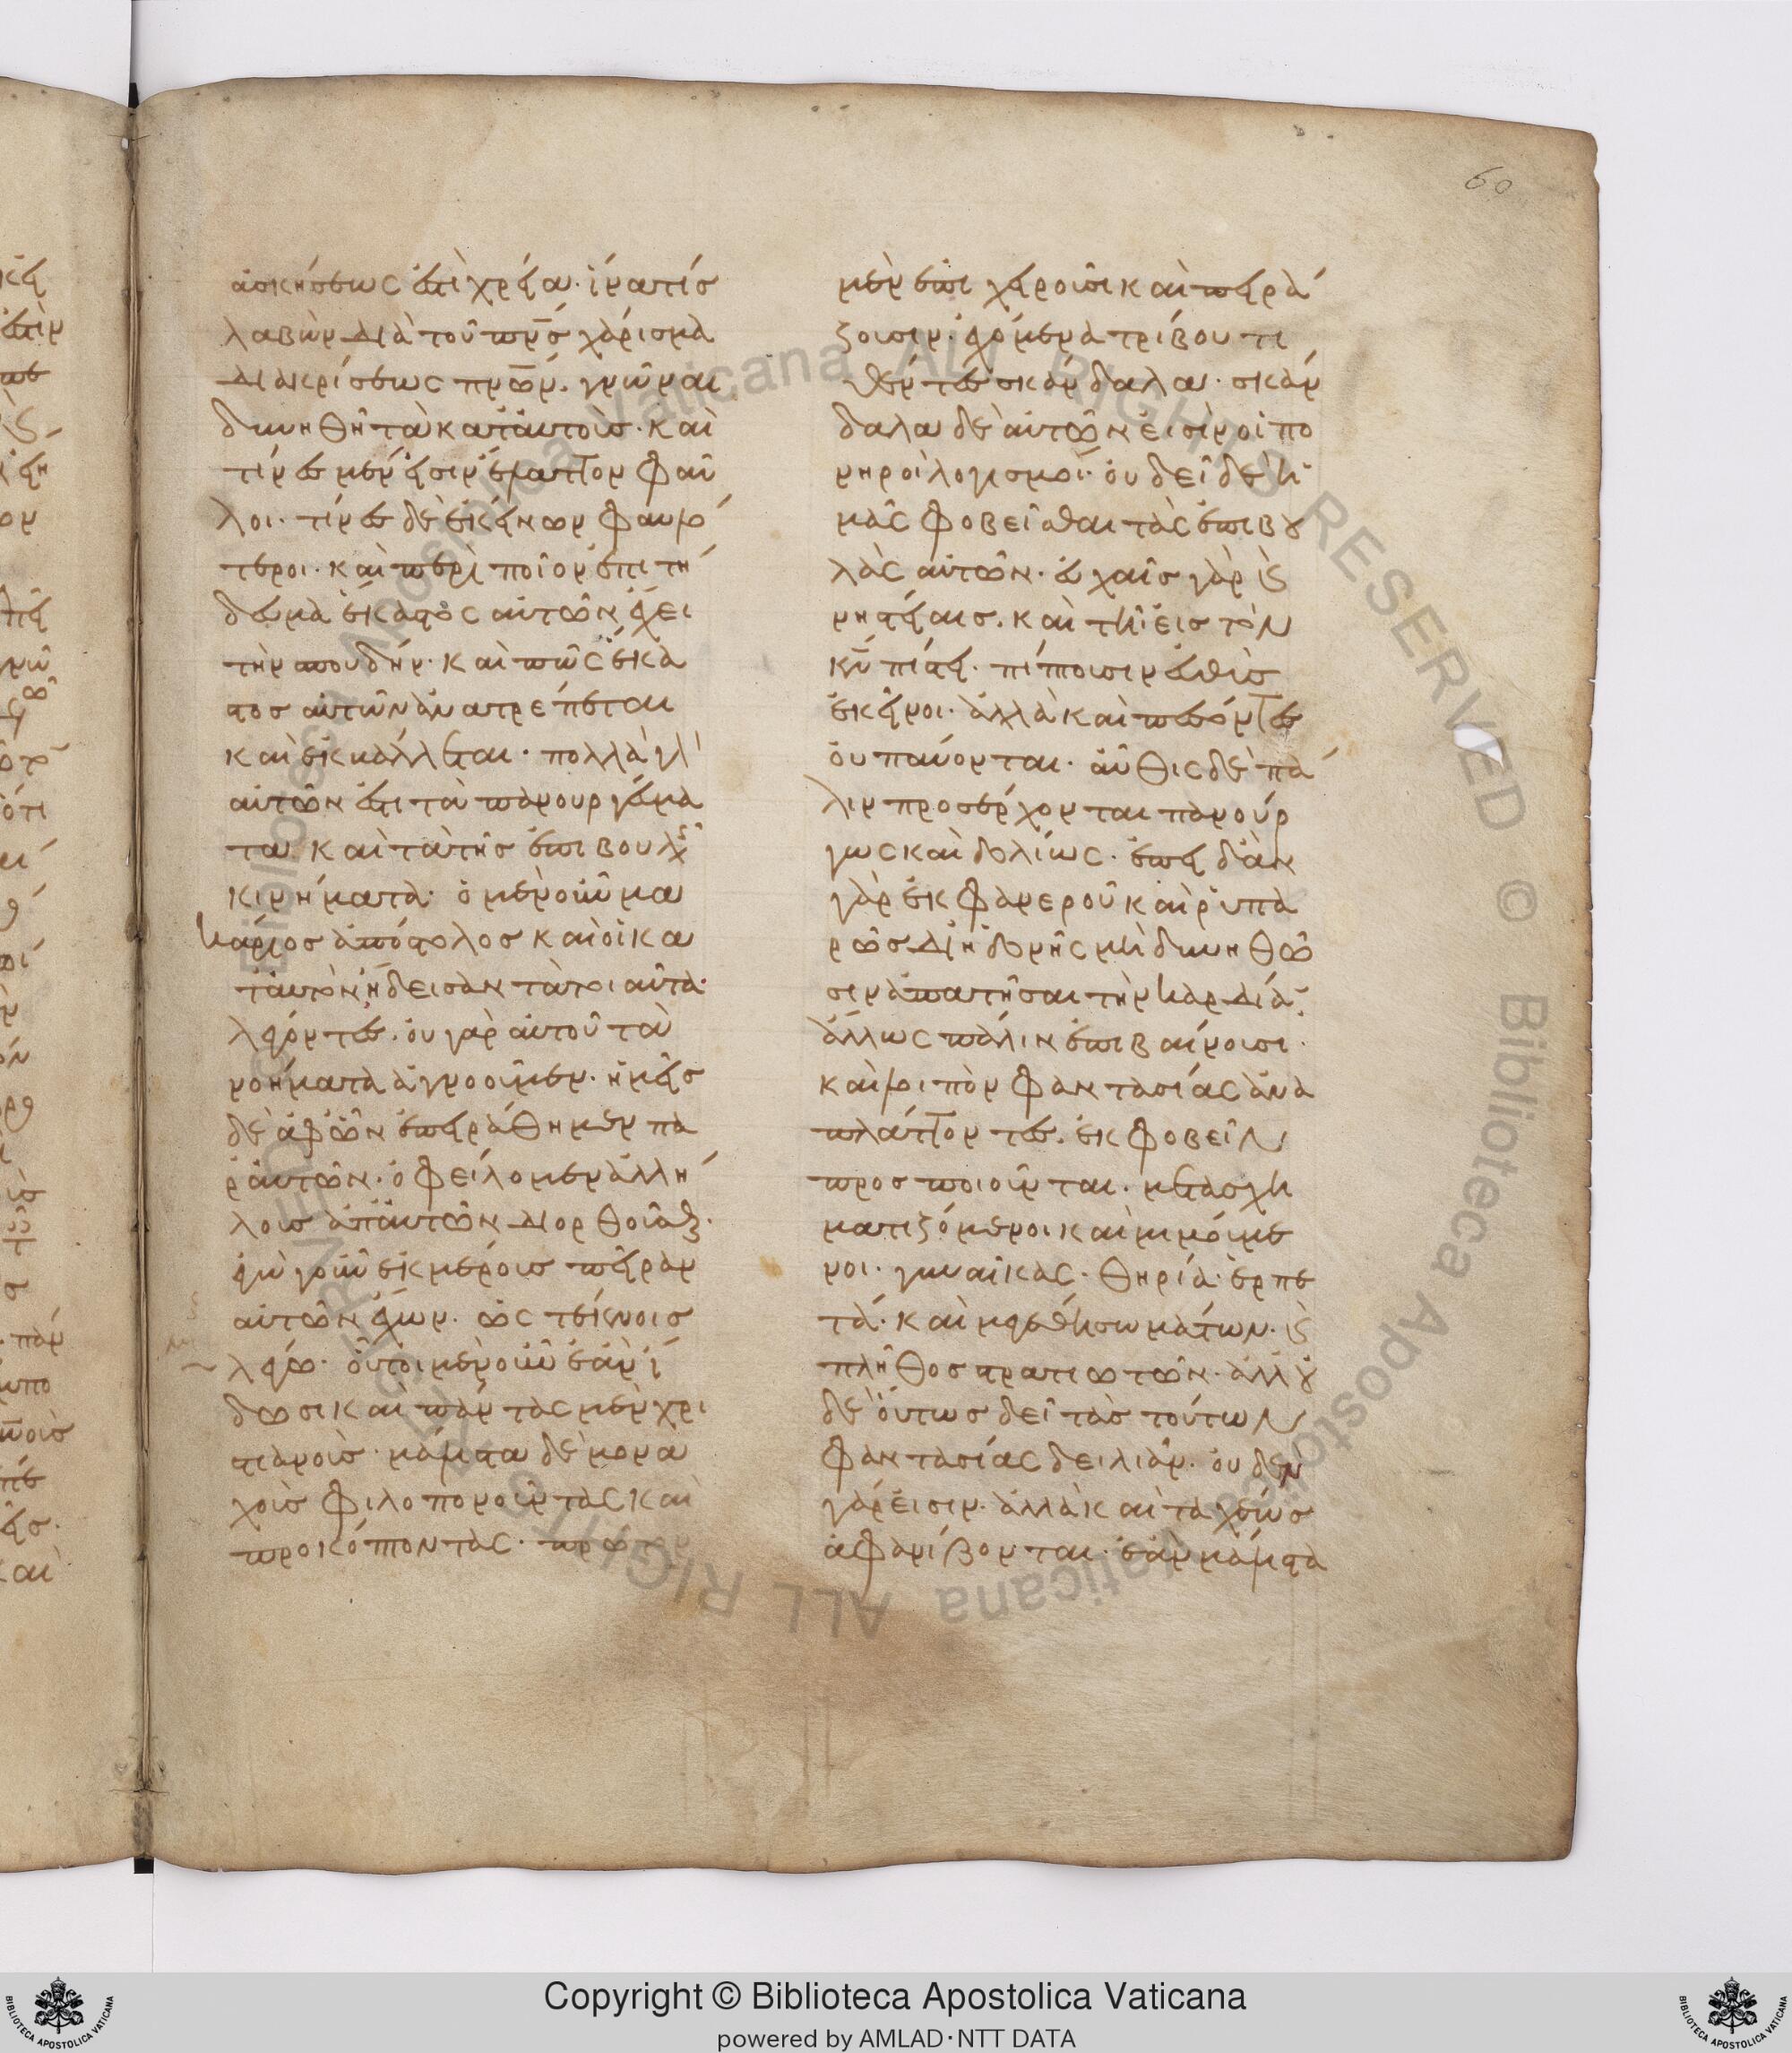 60
ἀσκήσεως ἐστὶ χρεία· ἵνα τίσ
λαβὼν διὰ τοῦ πν̅σ χάρισμα
διακρίσεως πν̅ων· γνῶναι
δυνηθῆ τὰ κατ' αὐτούς· καὶ
τίνες μὲν εἰσὶν ἔλαττον φαῦ
λοι· τίνες δὲ ἐκείνων φαυλό
τεροι· καὶ περὶ ποῖον ἐπιτή
δευμα ἕκαστος αὐτῶν ἔχει
τὴν σπουδήν· καὶ πῶς ἕκα
στοσ αὐτῶν ἀνατρέπεται
καὶ ἐκβάλλεται· πολλὰ γὰρ
αὐτῶν ἐστι τὰ πανουργεύμα
τα καὶ τὰ τῆσ ἐπιβουλῆς
κινήματα· ὁ μὲν οὖν μα
κάριοσ ἀπόστολοσ καὶ οἱ κα
τ' αὐτὸν ἤδεισαν τὰ τοιαῦτα·
λέγοντες· οὐ γὰρ αὐτοῦ τὰ
νοήματα ἀγνοοῦμεν· ἡμεῖσ
δὲ ἀφ' ὧν ἐπειράθημεν πα
ρ' αὐτῶν· ὀφείλομεν ἀλλή
λουσ ἀπ' αὐτῶν διορθοῦσθαι·
ἐγὼ γοῦν ἐκ μέρουσ πεῖραν
αὐτῶν ἔχων· ὡς τέκνοισ
λέγω· οὗτοι μὲν οὖν ἐὰν ἴ
δωσι καὶ πάντας μὲν χρι
στιανούσ· μάλιστα δὲ μονα
χοὺσ φιλοπονοῦντας καὶ
προκόπτοντας· πρῶτον
μὲν ἐπιχειροῦσι καὶ πειρά
ζουσιν· ἐχόμενα τρίβου τι
θέντες σκάνδαλα· σκάν
δαλα δὲ αὐτῶν εἰσὶν οἱ πο
νηροὶ λογισμοί· οὐ δεῖ δὲ ἡ
μᾶς φοβεῖσθαι τὰς ἐπιβου
λὰς αὐτῶν· εὐχαῖσ γὰρ καὶ
νηστείαισ· καὶ τῆ εἰσ τὸν
κ̅ν πίστει· πίπτουσιν εὐθὺσ
ἐκεῖνοι· ἀλλὰ καὶ πεσόντες
οὐ παύονται· αὖθις δὲ πά
λιν προσέρχονται πανούρ
γως καὶ δολίως· ἐπειδὰν
γὰρ ἐκ φανεροῦ καὶ ῥυπα
ρῶσ δι' ἡδονῆς μὴ δυνηθῶ
σιν ἀπατῆσαι τὴν καρδίαν·
ἄλλως πάλιν ἐπιβαίνουσι·
καὶ λοιπὸν φαντασίας ἀνα
πλάττοντες· ἐκφοβεῖν
προσποιοῦνται· μετασχη
ματιζόμενοι καὶ μιμούμε
νοι· γυναῖκας· θηρία· ἑρπε
τά· καὶ μεγέθη σωμάτων· καὶ
πλῆθοσ στρατιωτῶν· ἀλλ' οὐ
δὲ οὕτωσ δεῖ τὰσ τούτων
φαντασίας δειλιᾶν· οὐδὲν
γάρ εἰσιν· ἀλλὰ καὶ ταχέωσ
ἀφανίζονται· ἐὰν μάλιστα
Copyright © Biblioteca Apostolica Vaticana
powered by AMLAD·NTT DATA